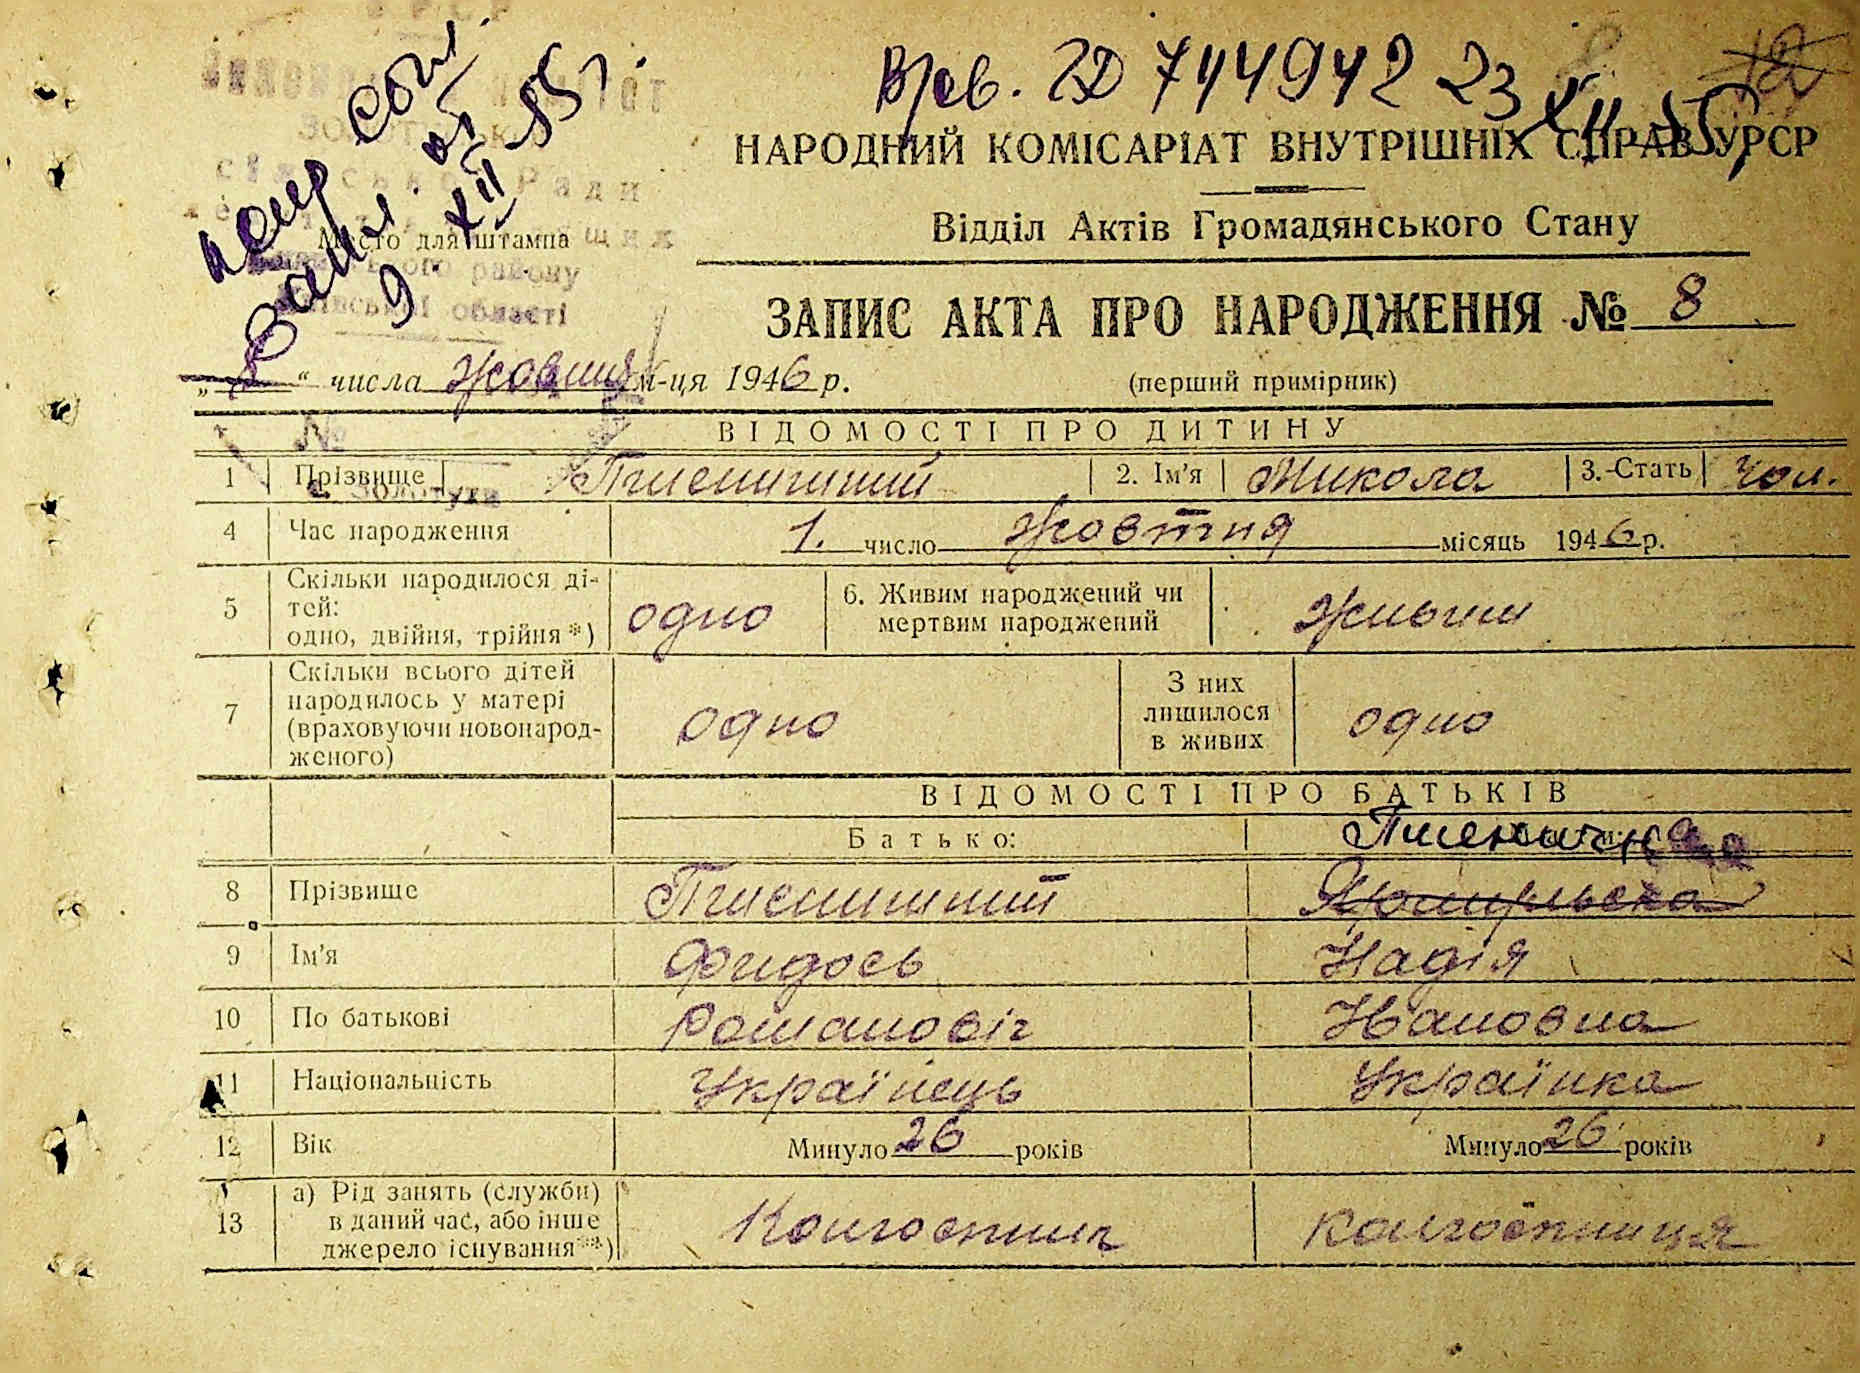 Врев. 2D 744942 23 XII 85
12
НАРОДНИЙ КОМІСАРІАТ ВНУТРІШНІХ СПРАВ УРСР
Відділ Актів Громадянського Стану
9 XII 85 г.
Место для штампа
ського району
Київської області
ЗАПИС АКТА ПРО НАРОДЖЕННЯ № 8
„ 8 “ числа жовтня м-ця 1946 р.
(перший примірник)
ВІДОМОСТІ ПРО ДИТИНУ
1 Прізвище Пшеничний 2. Ім'я Микола 3.-Стать чол.
4 Час народження 1. число жовтня місяць 1946 р.
5 Скільки народилося ді-
тей:
одно, двійня, трійня *) одно 6. Живим народжений чи
мертвим народжений живим
7 Скільки всього дітей
народилось у матері
(враховуючи новонарод-
женого) одно З них
лишилося
в живих одно
ВІДОМОСТІ ПРО БАТЬКІВ
Батько: Пшенична
8 Прізвище Пшеничний
9 Ім'я Фидось Надія
10 По батькові Романовіч Івановна
11 Національність Українець Українка
12 Вік Минуло 26 років Минуло 26 років
13 а) Рід занять (служби)
в даний час, або інше
джерело існування **) Колгоспник колгоспниця